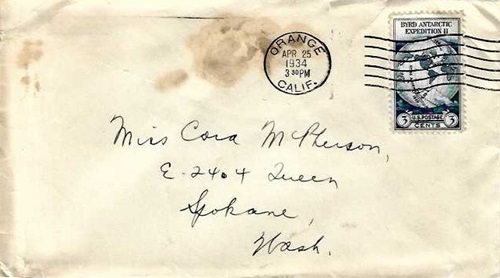 ORANGE
APR 25
1934
3 30 PM
CALIF.
BYRD ANTARCTIC
EXPEDITION II
U.S. POSTAGE
3 CENTS 3
Miss Cora McPherson,
E-2404 Queen
Spokane,
Wash.